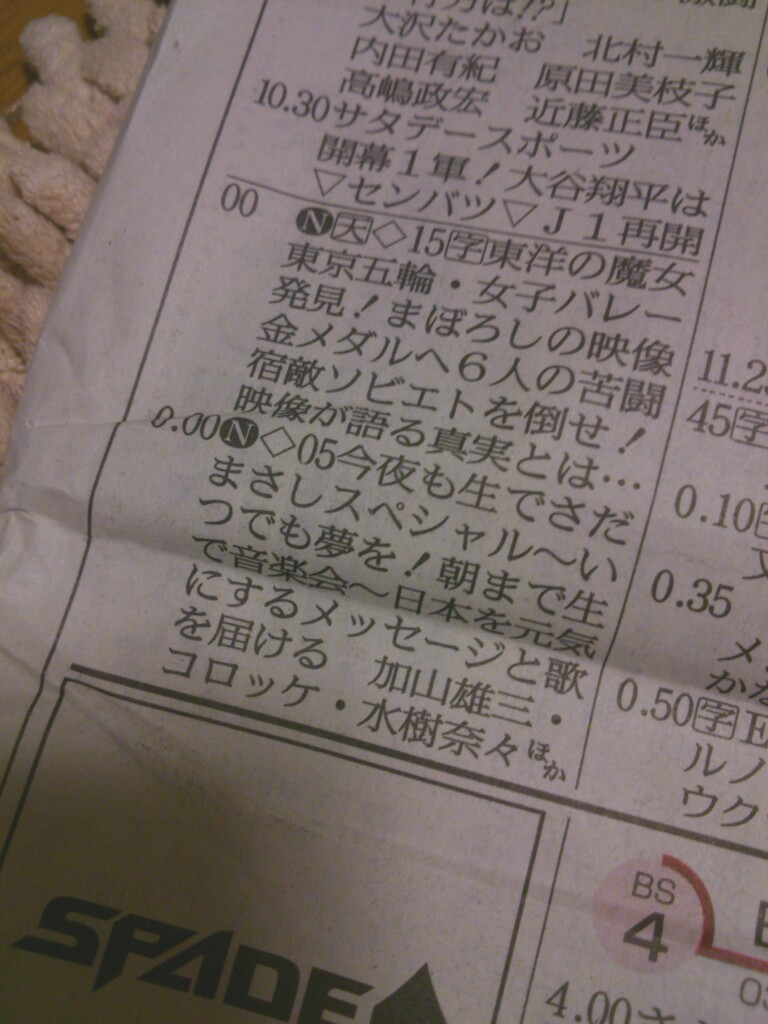 大沢たかお　北村一輝
内田有紀　原田美枝子
高嶋政宏　近藤正臣ほか
10.30サタデースポーツ
開幕１軍！大谷翔平は
▽センバツ▽Ｊ１再開
00　Ⓝ天◇15字東洋の魔女
東京五輪・女子バレー
発見！まぼろしの映像
金メダルへ６人の苦闘
宿敵ソビエトを倒せ！
映像が語る真実とは…
0.00Ⓝ◇05今夜も生でさだ
まさしスペシャル～い
つでも夢を！朝まで生
で音楽会～日本を元気
にするメッセージと歌
を届ける　加山雄三・
コロッケ・水樹奈々ほか
45字
0.10
0.35
メ
かな
0.50字
ルノ
ウク
SPADE
BS
4
4.00